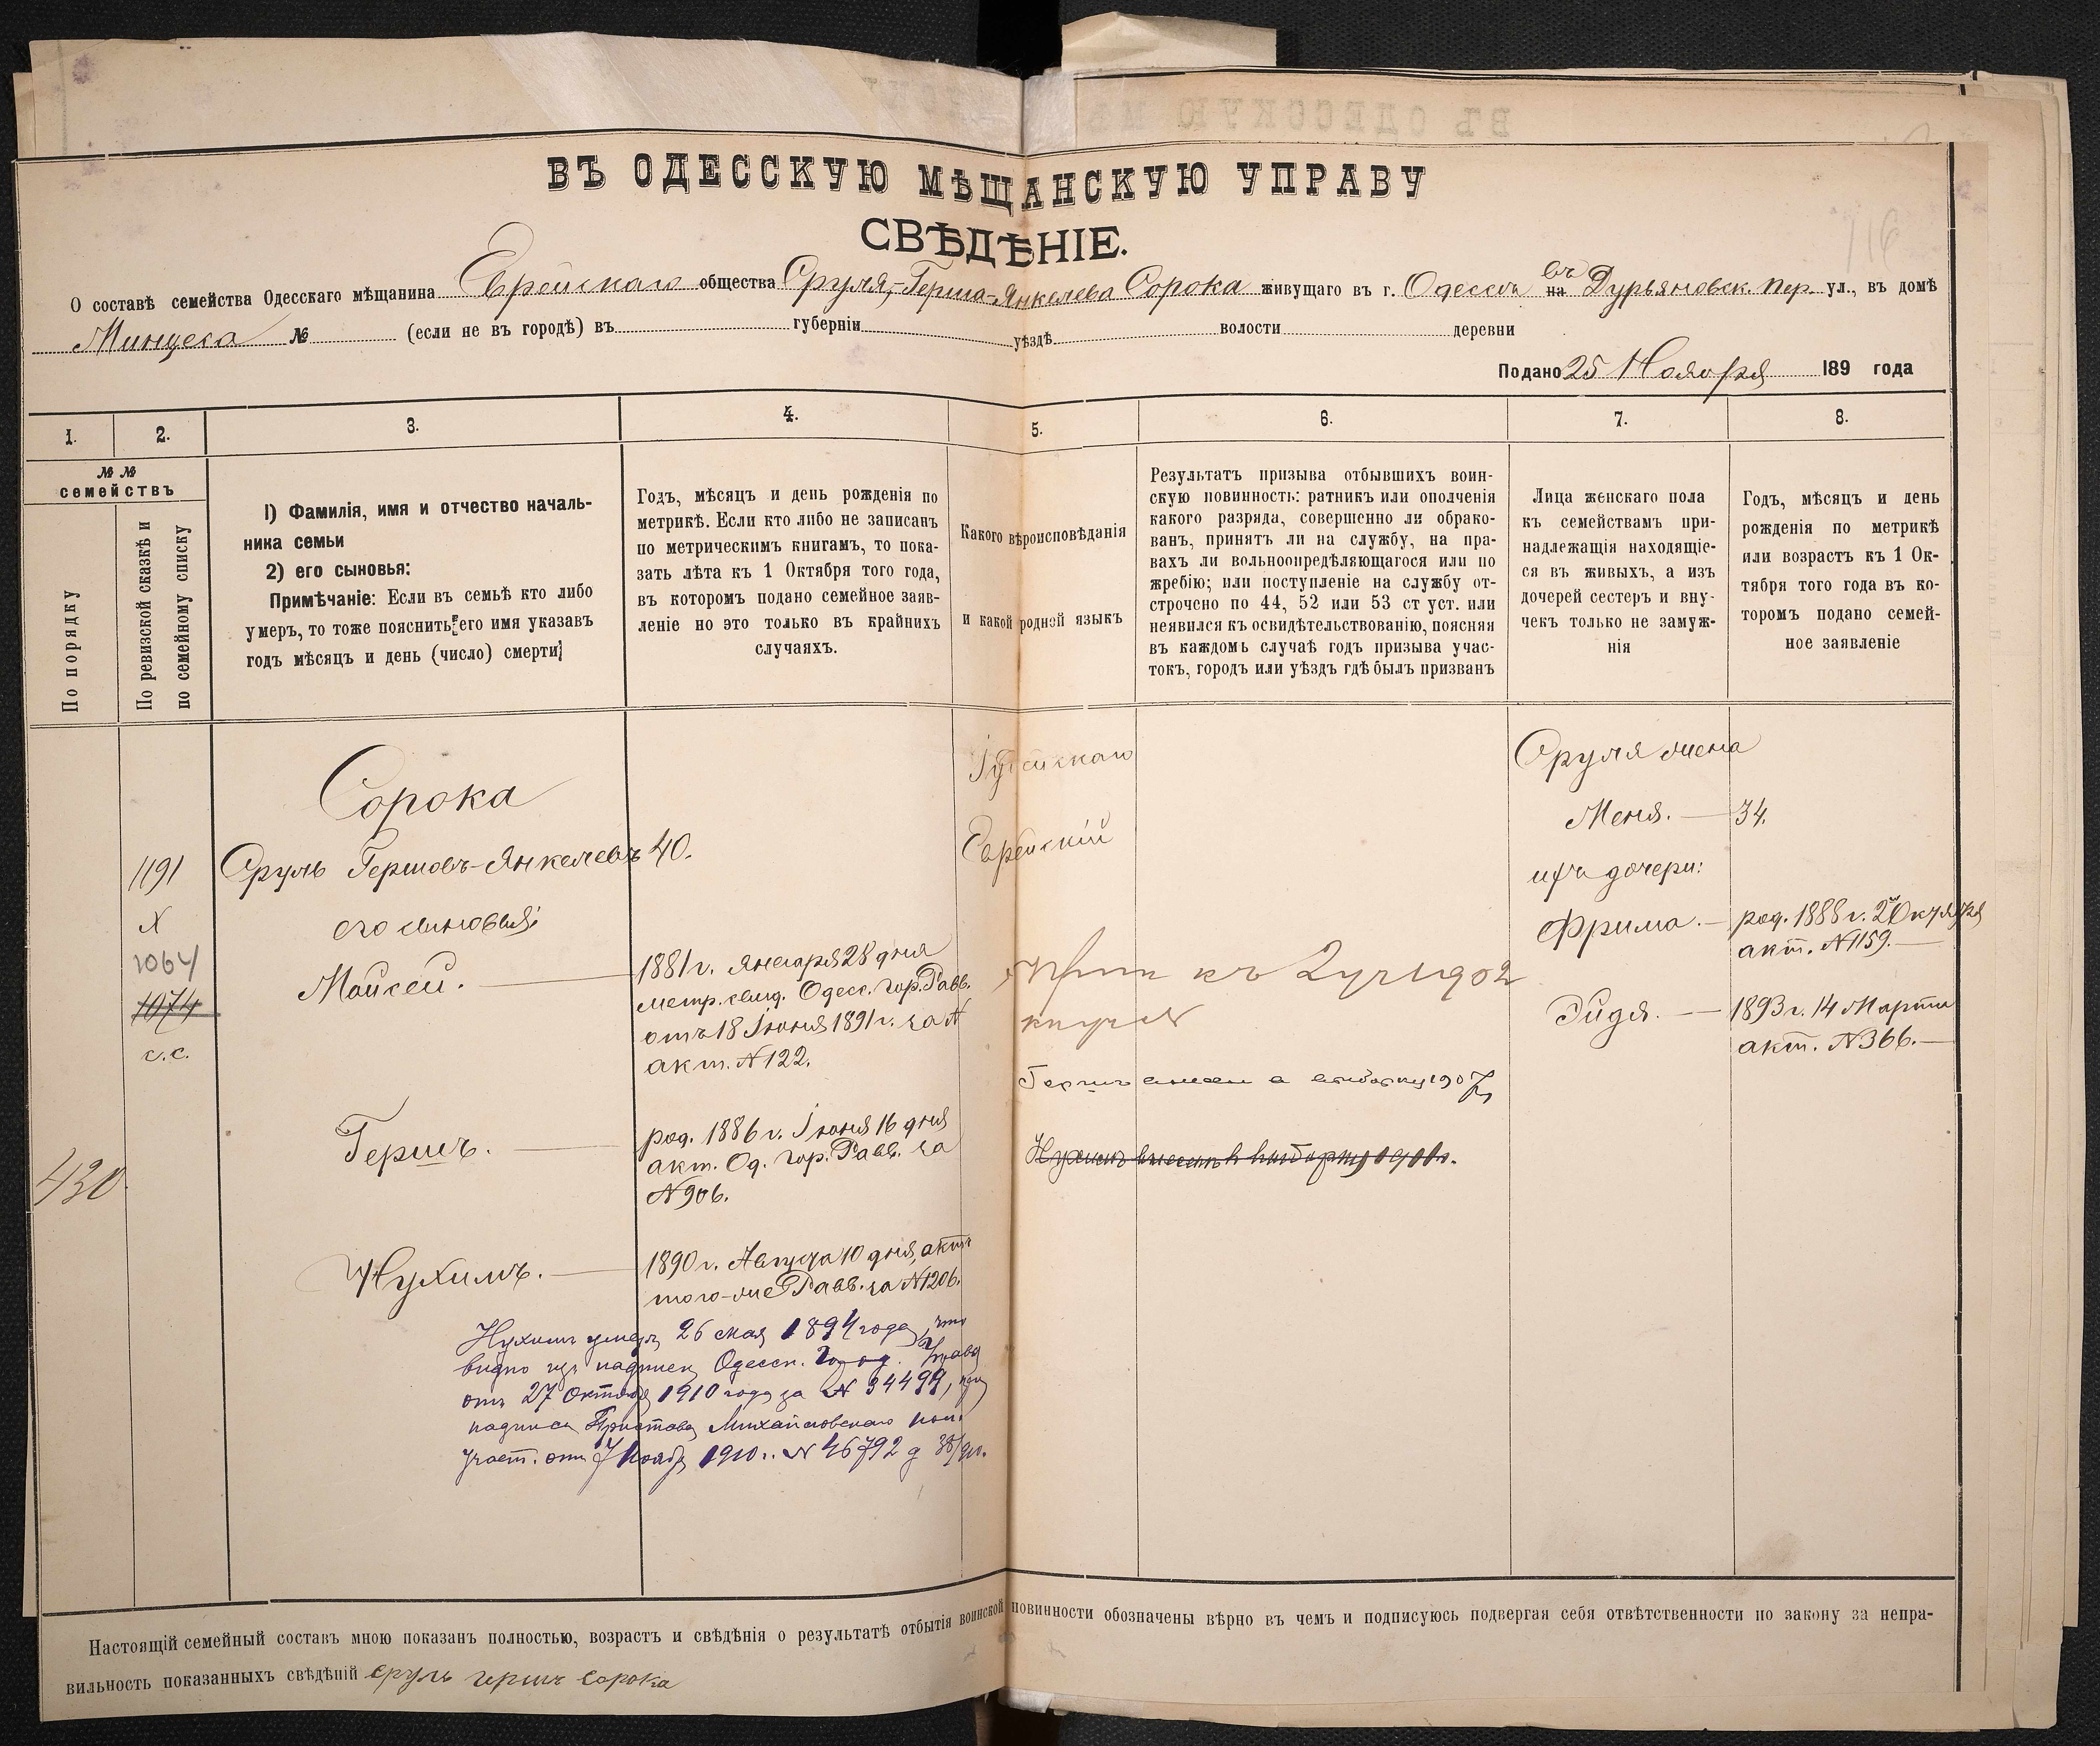 ВЪ ОДЕССКУЮ МѢЩАНСКУЮ УПРАВУ
СВѢДѢНІЕ.
О составѣ семейства Одесскаго мѣщанина Еврейскаго общества Сруля-Герша-Янкелева Сорока живущаго въ г. Одессѣ въ на Дурьяновск. пер. ул., въ домѣ
Минцеса № (если не въ городѣ) въ губерніи уѣздѣ волости деревни
Подано 25 Ноября 189 года
1. 2. 3. 4. 5. 6. 7. 8.
№ №
семействъ
По порядку
По ревизской сказкѣ и
по семейному списку
1) Фамилія, имя и отчество началь-
ника семьи
2) его сыновья:
Примѣчаніе: Если въ семьѣ кто либо
умеръ, то тоже пояснить его имя указавъ
годъ мѣсяцъ и день (число) смерти
Годъ, мѣсяцъ и день рожденія по
метрикѣ. Если кто либо не записанъ
по метрическимъ книгамъ, то пока-
зать лѣта къ 1 Октября того года,
въ которомъ подано семейное заяв-
леніе но это только въ крайнихъ
случаяхъ.
Какого вѣроисповѣданія
и какой родной языкъ
Результатъ призыва отбывшихъ воин-
скую повинность: ратникъ или ополченія
какого разряда, совершенно ли обрако-
ванъ, принятъ ли на службу, на пра-
вахъ ли вольноопредѣляющагося или по
жребію; или поступленіе на службу от-
строчено по 44, 52 или 53 ст уст. или
неявился къ освидѣтельствованію, поясняя
въ каждомъ случаѣ годъ призыва учас-
токъ, городъ или уѣздъ гдѣ былъ призванъ
Лица женскаго пола
къ семействамъ при-
надлежащія находящіе-
ся въ живыхъ, а изъ
дочерей сестеръ и вну-
чекъ только не замуж-
нія
Годъ, мѣсяцъ и день
рожденія по метрикѣ
или возрастъ къ 1 Ок-
тября того года въ ко-
торомъ подано семей-
ное заявленіе
430
1191
X
1064
1074
с.с.
Сорока
Сруль Гершовъ-Янкелевъ 40.
его сыновья:
Мойсей. — 1881 г. января 28 дня
метр. свид. Одесс. гор. Равв.
отъ 18 Іюня 1891 г. за №
акт. № 122.
Гершъ. — род. 1886 г. Іюня 16 дня
акт. Од. гор. Равв. за
№ 906.
Нухимъ. — 1890 г. Августа 10 дня, актъ
того-же Равв. за № 1206.
Нухимъ умеръ 26 мая 1894 года, что
видно изъ надписи Одесск. Город. Управы
отъ 27 Октября 1910 года за № 34499,
надписи Пристава Михайловскаго пол.
участ. отъ 7 Ноября 1910 г. № 46792
Іудейскаго
Еврейскій
къ 2 уч 1902
Гершъ 1907
Нухимъ внесенъ въ
Сруля жена
Меня. — 34.
ихъ дочери:
Фрима. — род. 1888 г. 2 Октября
акт. № 1159. —
Эйдя. — 1893 г. 14 Марта
акт. № 366. —
Настоящій семейный составъ мною показанъ полностью, возрастъ и свѣдѣнія о результатѣ отбытія воинской повинности обозначены вѣрно въ чемъ и подписуюсь подвергая себя отвѣтственности по закону за непра-
вильность показанныхъ свѣдѣній Сруль герш Сорока